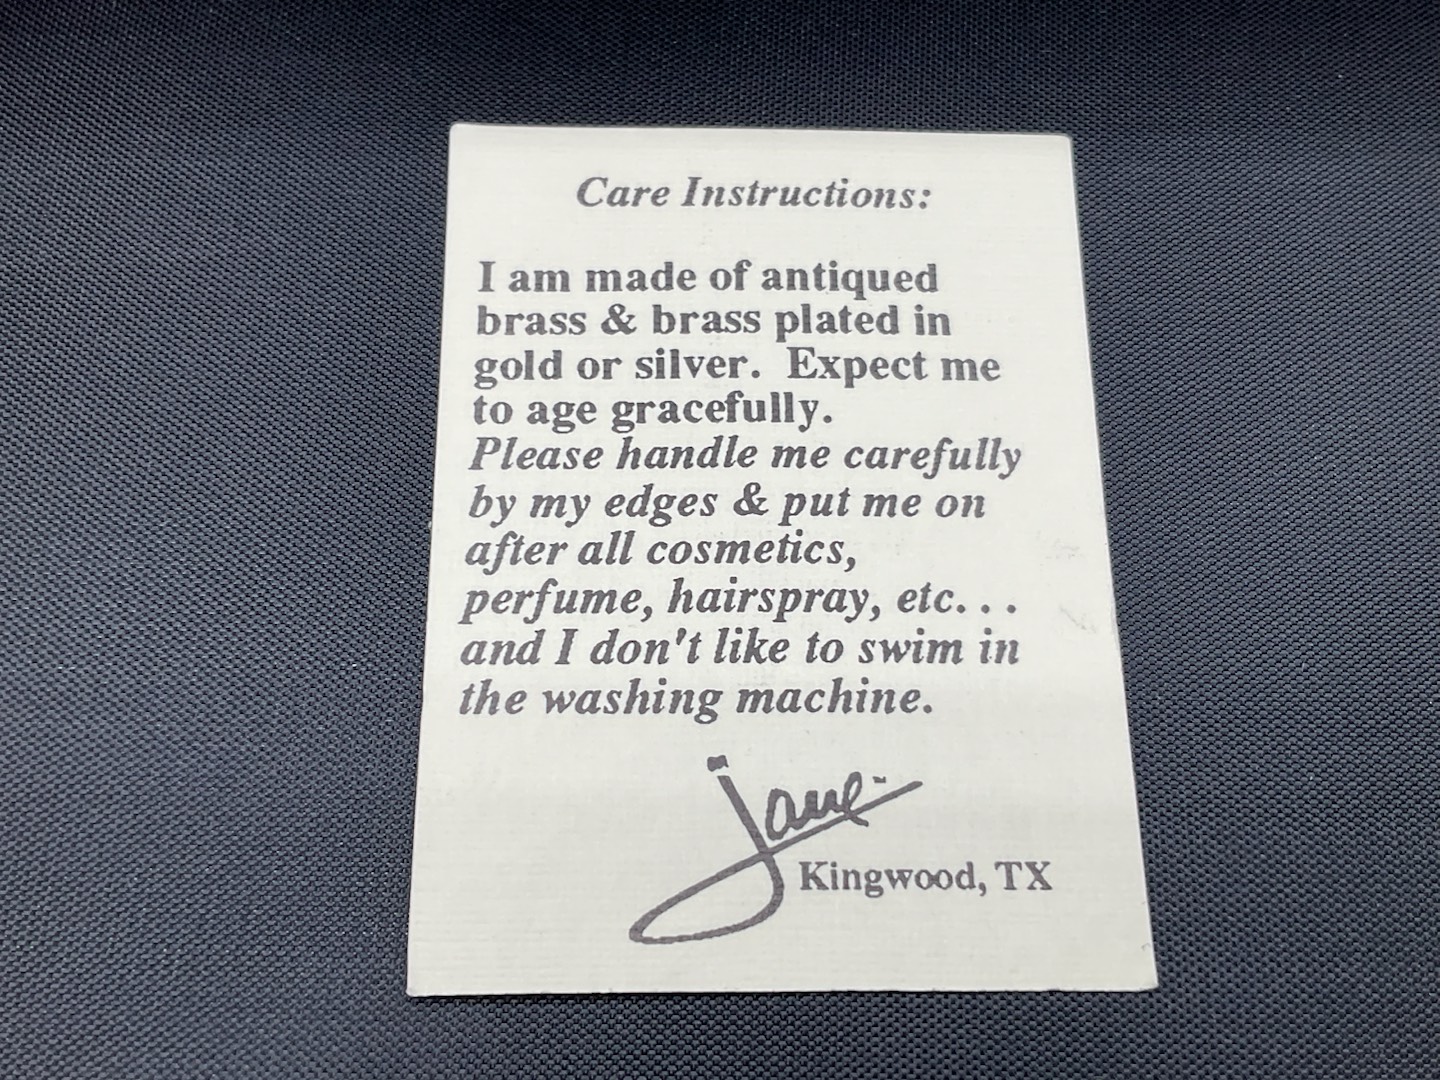 Care Instructions:
I am made of antiqued
brass & brass plated in
gold or silver. Expect me
to age gracefully.
Please handle me carefully
by my edges & put me on
after all cosmetics,
perfume, hairspray, etc. . .
and I don't like to swim in
the washing machine.
Jane
Kingwood, TX